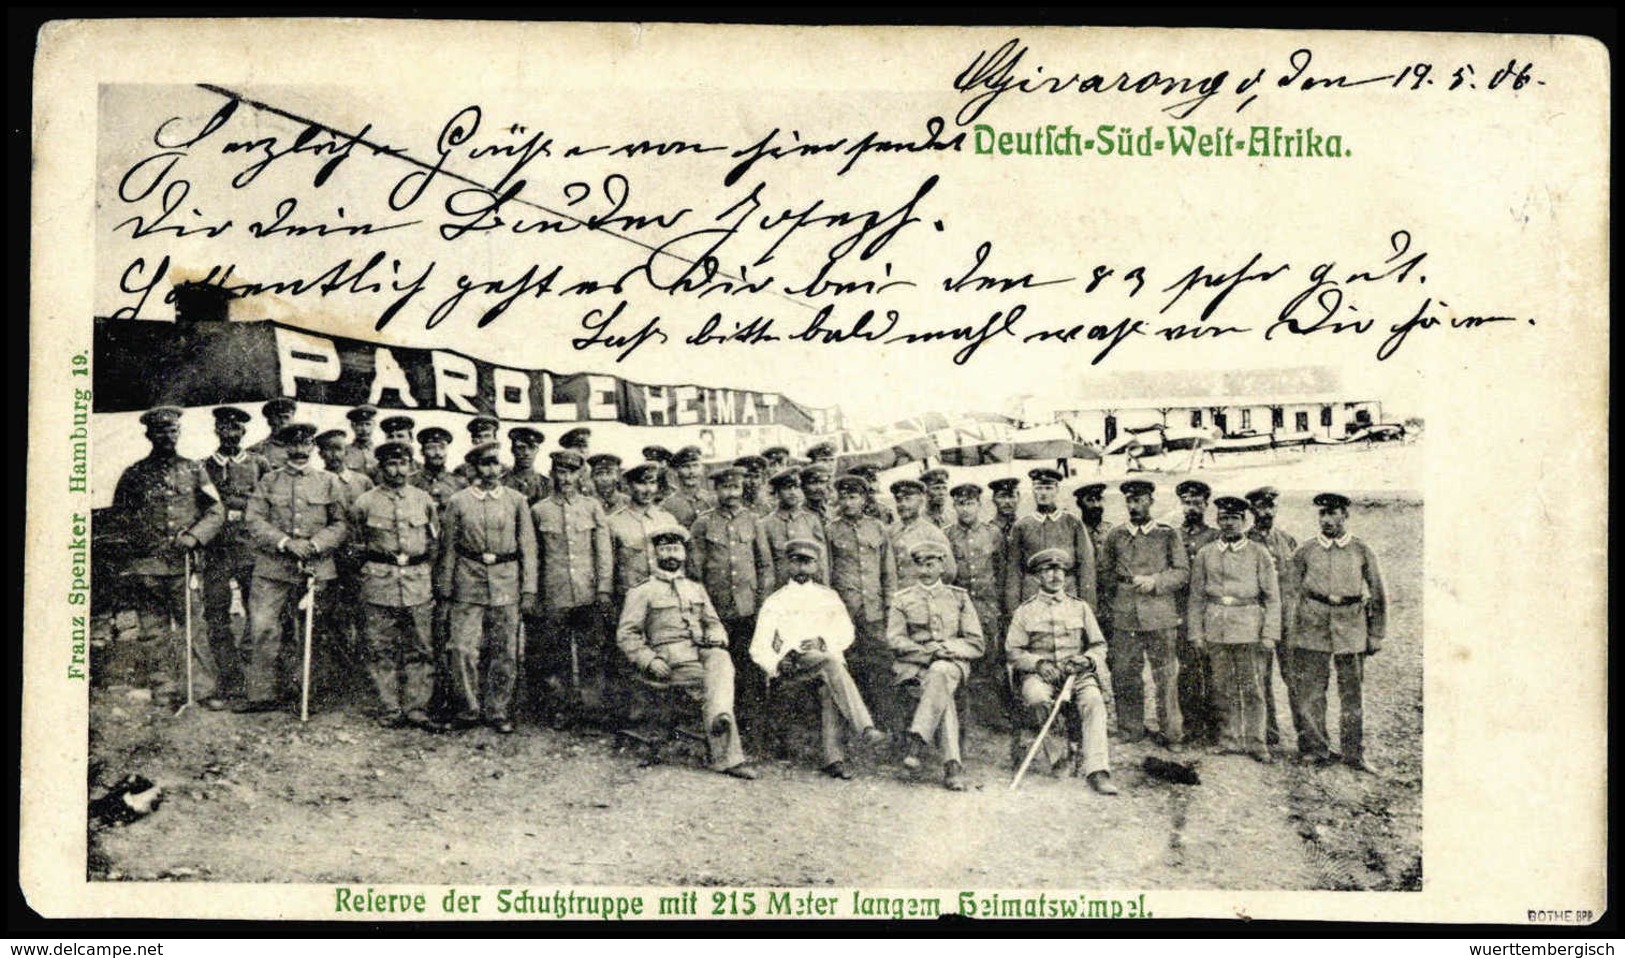 den 19. 5. 06.
Deutsch-Süd-West-Afrika.
Herzliche Grüße von hier sendet
Dir dein Bruder Joseph.
Hoffentlich geht es Dir bei den 83 sehr gut.
Laß bitte bald mahl was von Dir hören.
PAROLE HEIMAT
Franz Spenker Hamburg 19.
Reserve der Schutztruppe mit 215 Meter langem Heimatswimpel.
BOTHE BPP
www.delcampe.net
wuerttembergisch